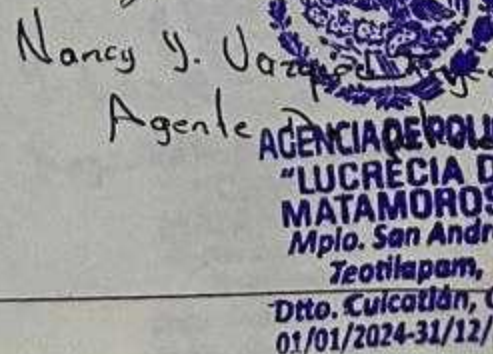 Nancy Y.
Agente
AGENCIA DE POLI
"LUCRECIA D
MATAMOROS
Mpio. San Andr
Teotilapam,
Dtto. Cuicatlán, O
01/01/2024-31/12/